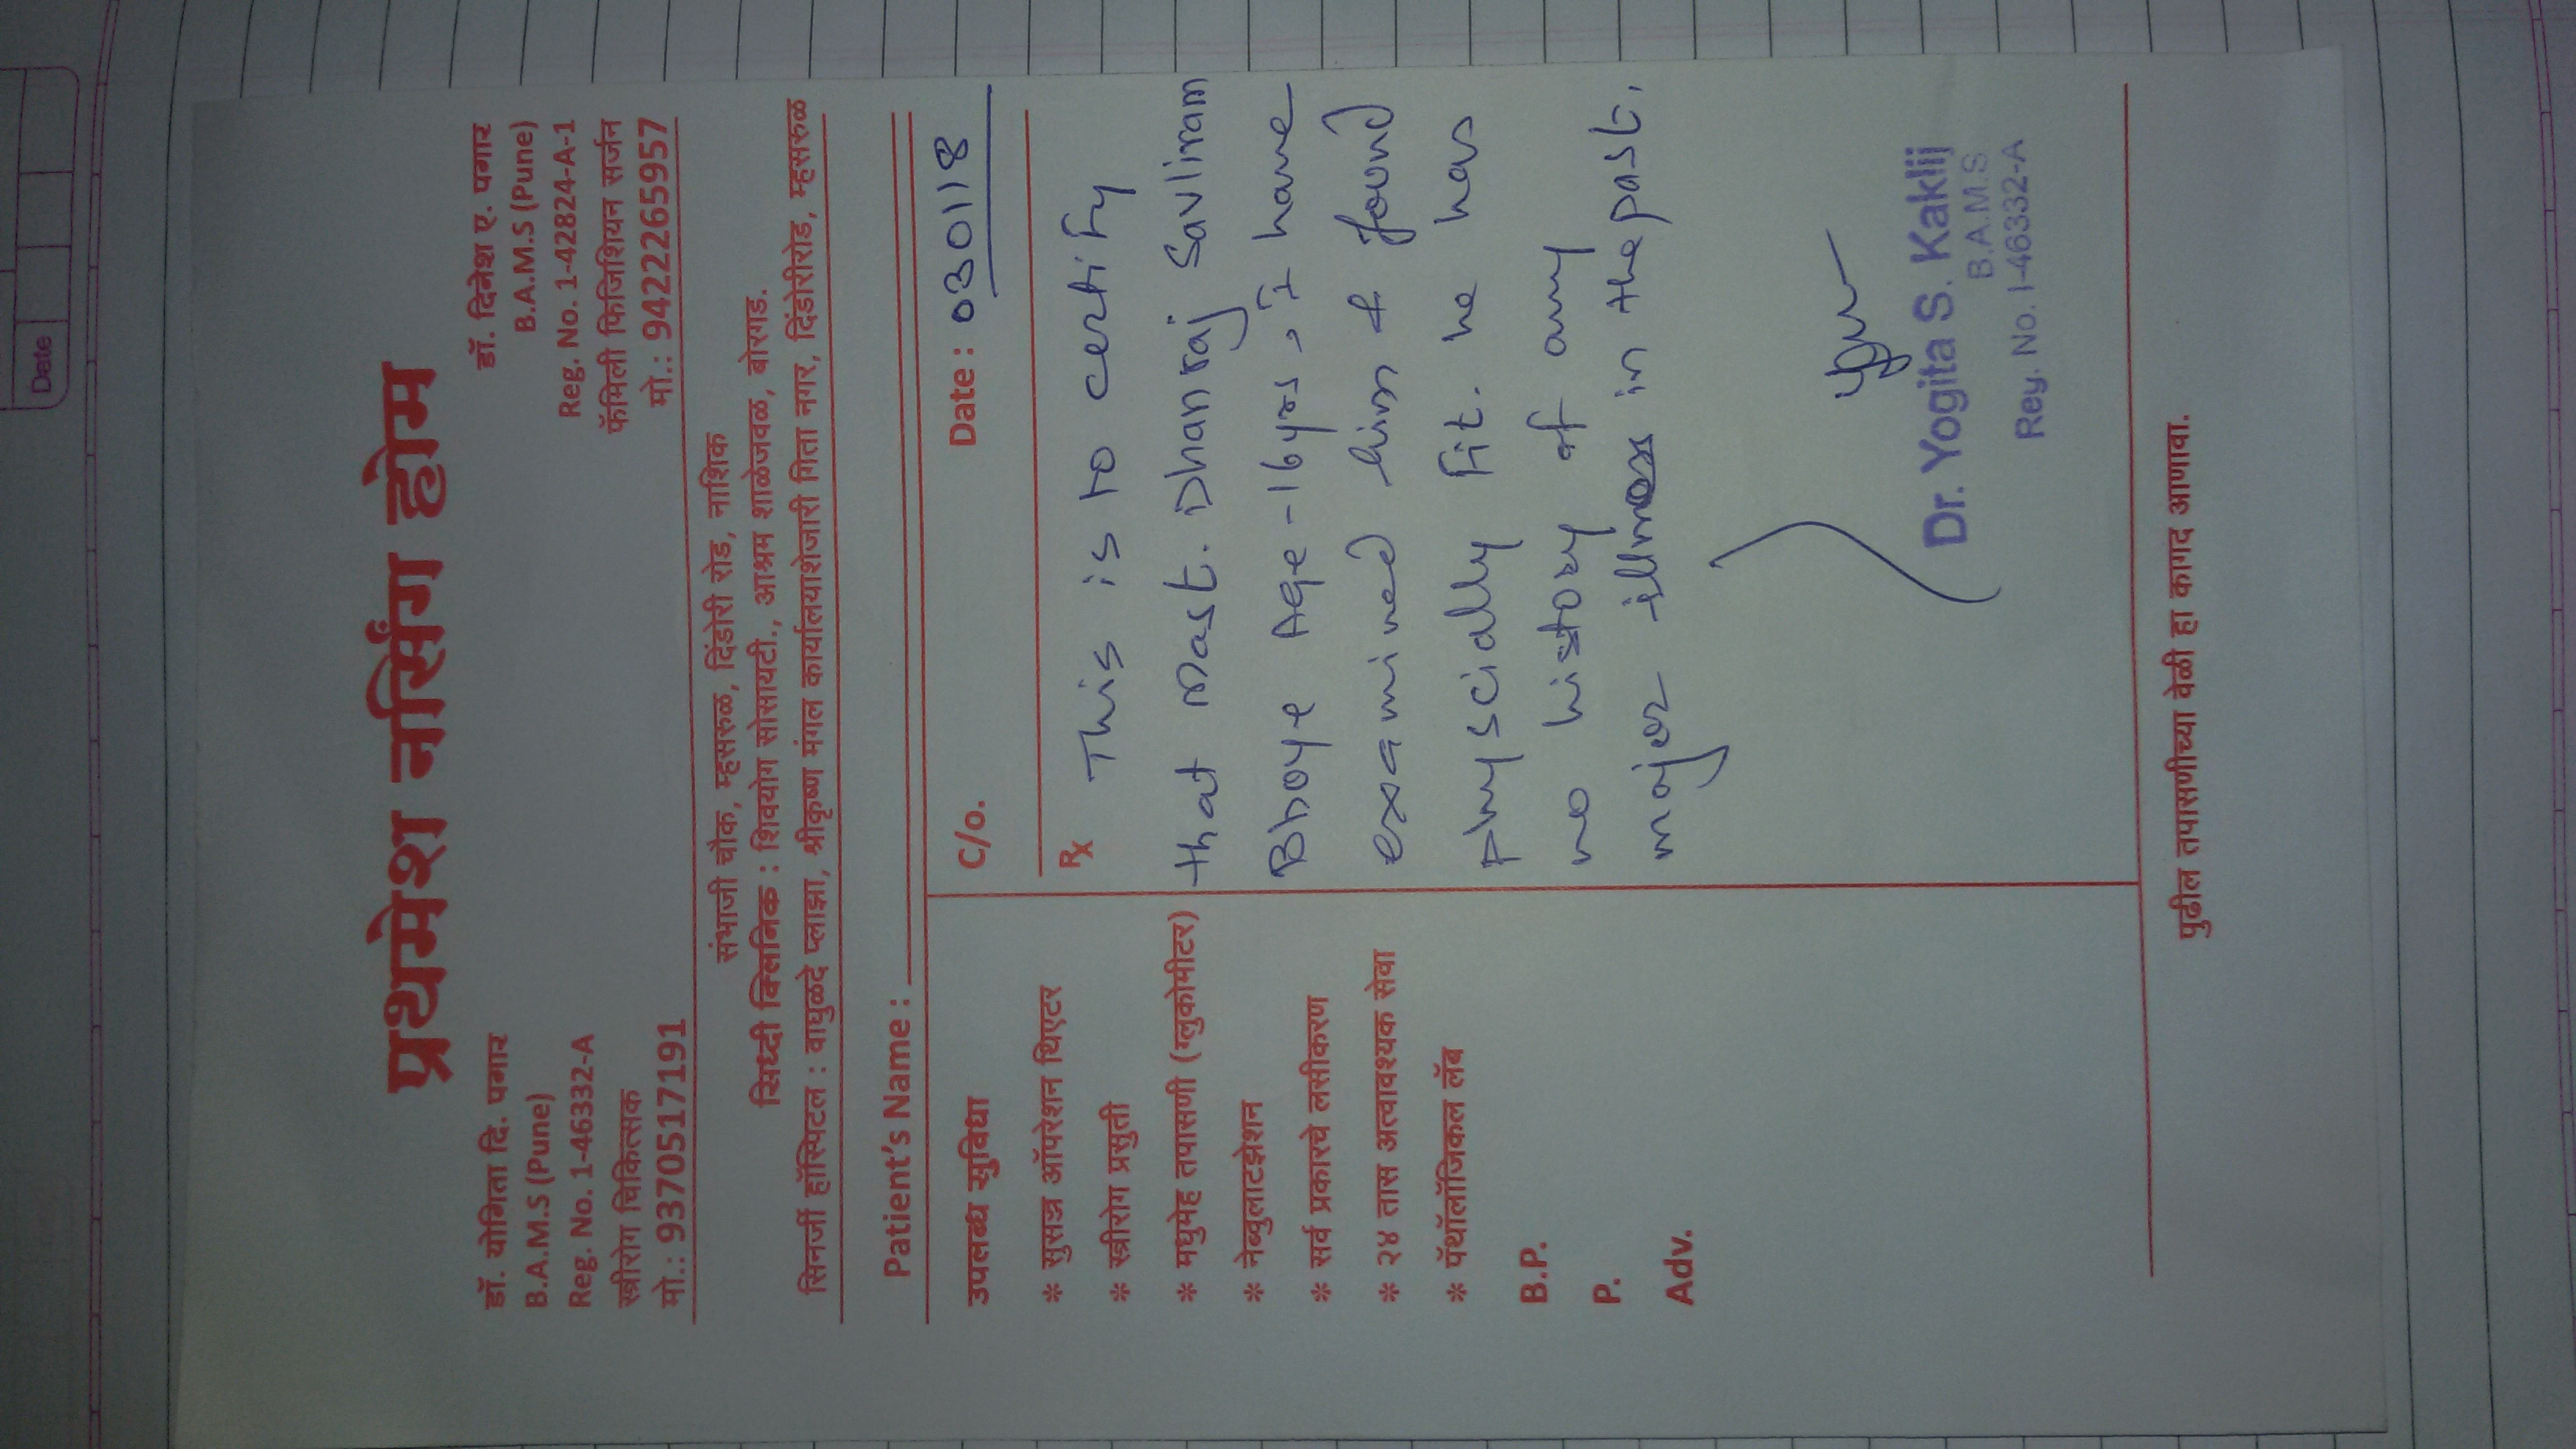 Date
प्रथमेश नर्सिंग होम
डॉ. योगिता दि. पगार
B.A.M.S (Pune)
Reg. No. 1-46332-A
स्त्रीरोग चिकित्सक
मो.: 9370517191
डॉ. दिनेश ए. पगार
B.A.M.S (Pune)
Reg. No. 1-42824-A-1
फॅमिली फिजिशियन सर्जन
मो.: 9422265957
संभाजी चौक, म्हसरुळ, दिंडोरी रोड, नाशिक
सिध्दी क्लिनिक : शिवयोग सोसायटी., आश्रम शाळेजवळ, बोरगड.
सिनर्जी हॉस्पिटल : वाघुळदे प्लाझा, श्रीकृष्ण मंगल कार्यालयाशेजारी गिता नगर, दिंडोरीरोड, म्हसरुळ
Patient's Name :
C/o.
Date : 030118
उपलब्ध सुविधा
* सुसज्ज ऑपरेशन थिएटर
* स्त्रीरोग प्रसुती
* मधुमेह तपासणी (ग्लुकोमीटर)
* नेब्युलाटझेशन
* सर्व प्रकारचे लसीकरण
* २४ तास अत्यावश्यक सेवा
* पॅथॉलॉजिकल लॅब
B.P.
P.
Adv.
Rx
This is to certify
that Mast. Dhanraj Savliram
Bhoye Age - 16 yrs, I have
examined him & found
physcially fit. he has
no history of any
major illness in the past.
Dr. Yogita S. Kaklij
B.A.M.S
Rey. No. I-46332-A
पुढील तपासणीच्या वेळी हा कागद आणावा.